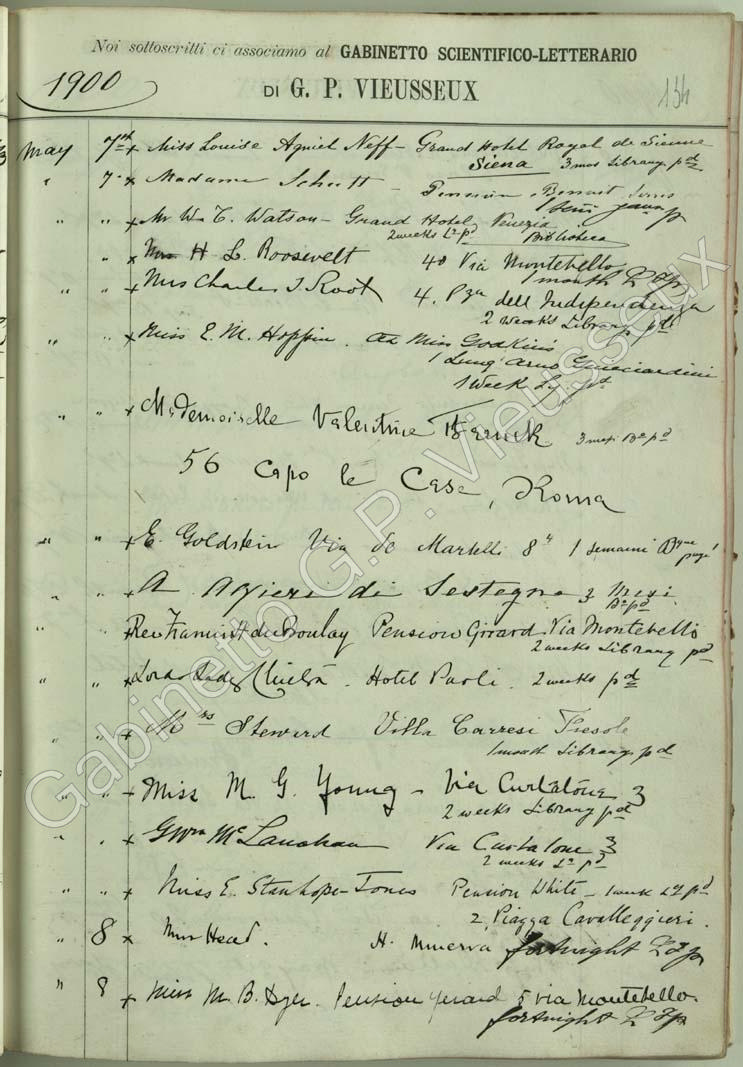 Noi sottoscritti ci associamo al GABINETTO SCIENTIFICO-LETTERARIO
1900
DI G. P. VIEUSSEUX
134
May 7th x Miss Louise Agniel Neff - Grand Hotel Royal de Sienne
Siena 3 mos Library pd
" 7 x Madame Schutt - Pension
" " x Mr W. T. Watson - Grand Hotel, Venezia
2 weeks Ly pd Biblioteca
" x Mrs H L. Roosevelt 48 Via Montebello
1 month
" " x Mrs Charles J Root 4. Pza dell Independenza
2 weeks Library pd
" " x Miss E. M. Hoppin. at Miss Godkin's
1 Lung' Arno Guicciardini
1 Week Ly. pd
" " x Mademoiselle Valentine 3 mesi pd
56 Capo le Case, Roma
" " x E. Goldstein Via de Martelli 8 1 semaine
" " x A Alfieri di Sostegno 3 Mesi
pd
" " x Rev Francis H du Boulay Pension Girard Via Montebello
2 weeks Library pd
" " x Lord & Lady Hotel Paoli. 2 weeks pd
" " x Mrs Steward Villa Carresi Fiesole
1 month Library pd
" " x Miss M. G. Young - Via Curtatone 3
2 weeks Library pd
" " x McLanahan Via Curtatone 3
2 weeks Ly pd
" " x Miss E. Stanhope-Jones Pension White - 1 week Ly pd
2, Piazza Cavalleggieri.
" 8 x Miss Head. H. Minerva fortnight
" 8 x Miss M. B. Pension Girard 5 via Montebello.
fortnight
Gabinetto G.P. Vieusseux